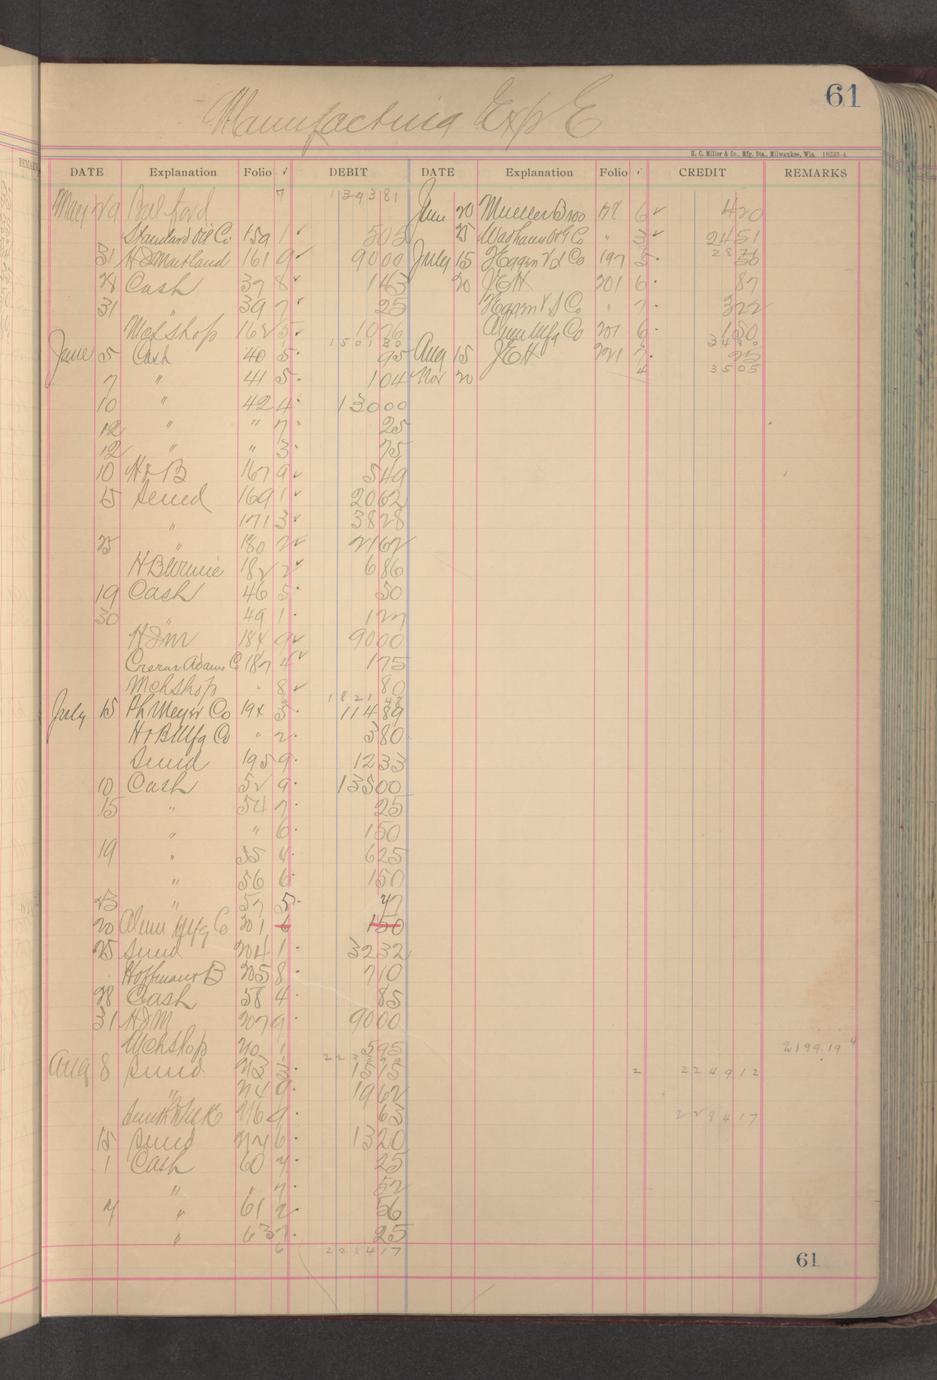 61
Manufacturing Exp E
H. C. Miller & Co., Mfg. Sta., Milwaukee, Wis.
DATE Explanation Folio ✓ DEBIT DATE Explanation Folio ✓ CREDIT REMARKS
May 29 Bal ford 7 139381
June 20 Mueller Bros 6 ✓ 420
Standard Oil Co 159 1 ✓ 505
25 " 3 ✓ 2451
31 H&Maitland 161 9 ✓ 9000
July 15 197 5 36
28 Cash 37 8 ✓ 143
20 JEH 201 6 87
31 39 7 ✓ 25
" 7 322
Mchshop 162 5 ✓ 1076
Alum Mfg Co 201 6 150
150130
3480
June 5 Cash 40 5 95
Aug 15 JEH 221 7 25
7 " 41 5 104
Nov 20 4 3505
10 " 42 4 13000
12 " " 7 25
12 " " 3 75
10 H&B 167 9 ✓ 549
15 Sund 169 1 ✓ 2062
" 171 3 ✓ 3828
25 " 180 2 ✓ 2162
182 2 ✓ 686
19 Cash 46 5 50
30 49 1 127
H&M 184 9 ✓ 9000
Crerar Adams C 187 4 ✓ 175
Mchshop " 8 ✓ 80
182148
July 15 Ph Meyer Co 194 3 11489
H&B Mfg Co " 2 380
Sund 195 9 1233
10 Cash 52 9 13500
15 " 54 7 25
" " 6 150
19 " 55 4 625
" 56 6 150
25 " 57 5 47
20 Alum Mfg Co 201 6 150
25 Sund 204 1 3232
Hoffman B 205 8 710
28 Cash 58 4 85
31 H&M 207 9 9000
Mchshop 1 595
2199.19 4
Aug 8 Sund 1515
2 224912
" 1962
9 63
229417
15 Sund 6 1320
1 Cash 60 7 25
" " 7 52
7 " 61 2 56
" 63 7 25
6
61